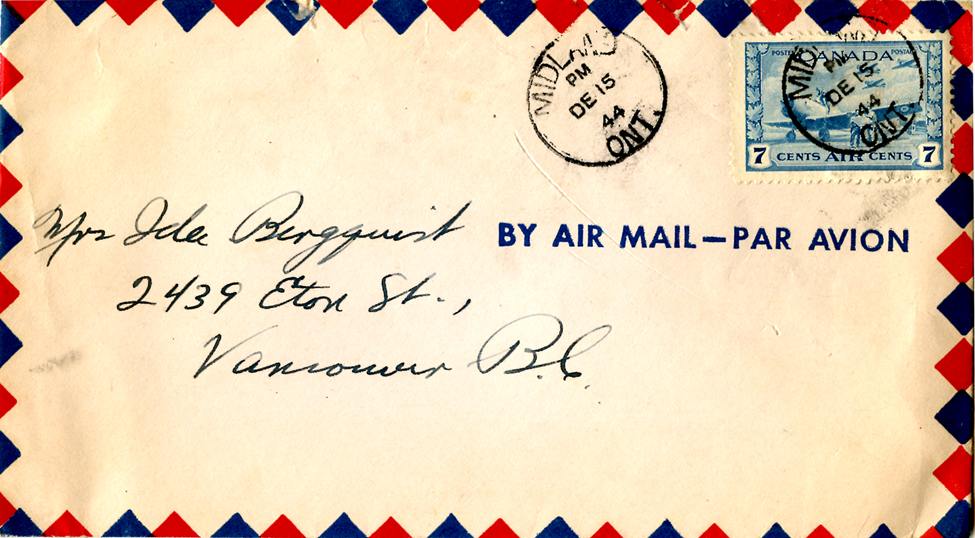 MIDLAND
PM
DE 15
44
ONT.
MIDLAND
PM
DE 15
44
ONT.
POSTES CANADA POSTAGE
7 CENTS AIR CENTS 7
Mrs Ida Bergquist
BY AIR MAIL—PAR AVION
2439 Eton St.,
Vancouver B.C.